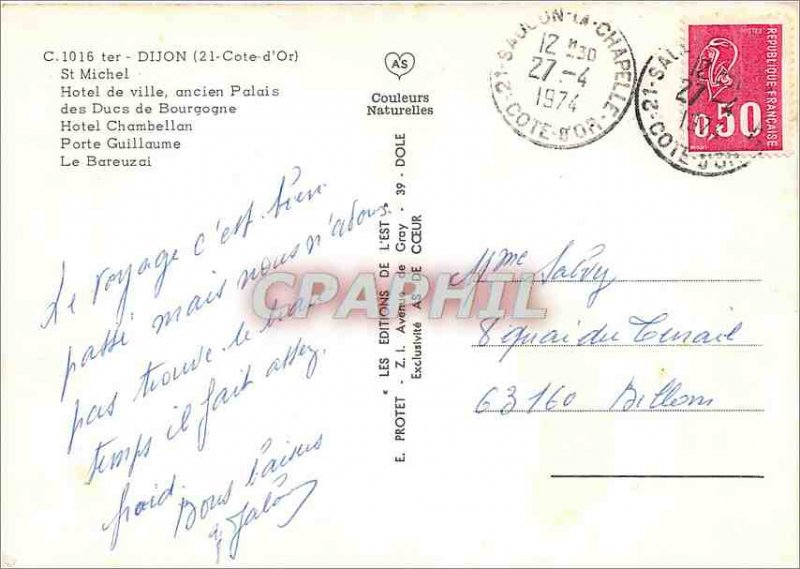 C. 1016 ter - DIJON (21-Cote-d'Or)
St Michel
Hotel de ville, ancien Palais
des Ducs de Bourgogne
Hotel Chambellan
Porte Guillaume
Le Bareuzai
AS
Couleurs
Naturelles
21-SAULON-LA-CHAPELLE
12 H30
27-4
1974
COTE-D'OR
POSTES
REPUBLIQUE FRANÇAISE
0,50
21-SAUL
27-4
COTE-D'OR
Le voyage c'est bien
passé mais nous n'avons
pas trouvé le beau
temps il fait assez
froid.
Bons baisers
E. PROTET - " LES EDITIONS DE L'EST " -
Z. I. Avenue de Gray - 39 - DOLE
Exclusivité AS DE CŒUR
CPAPHIL
Mme Salvy
8 quai du Terrail
63160 Billom